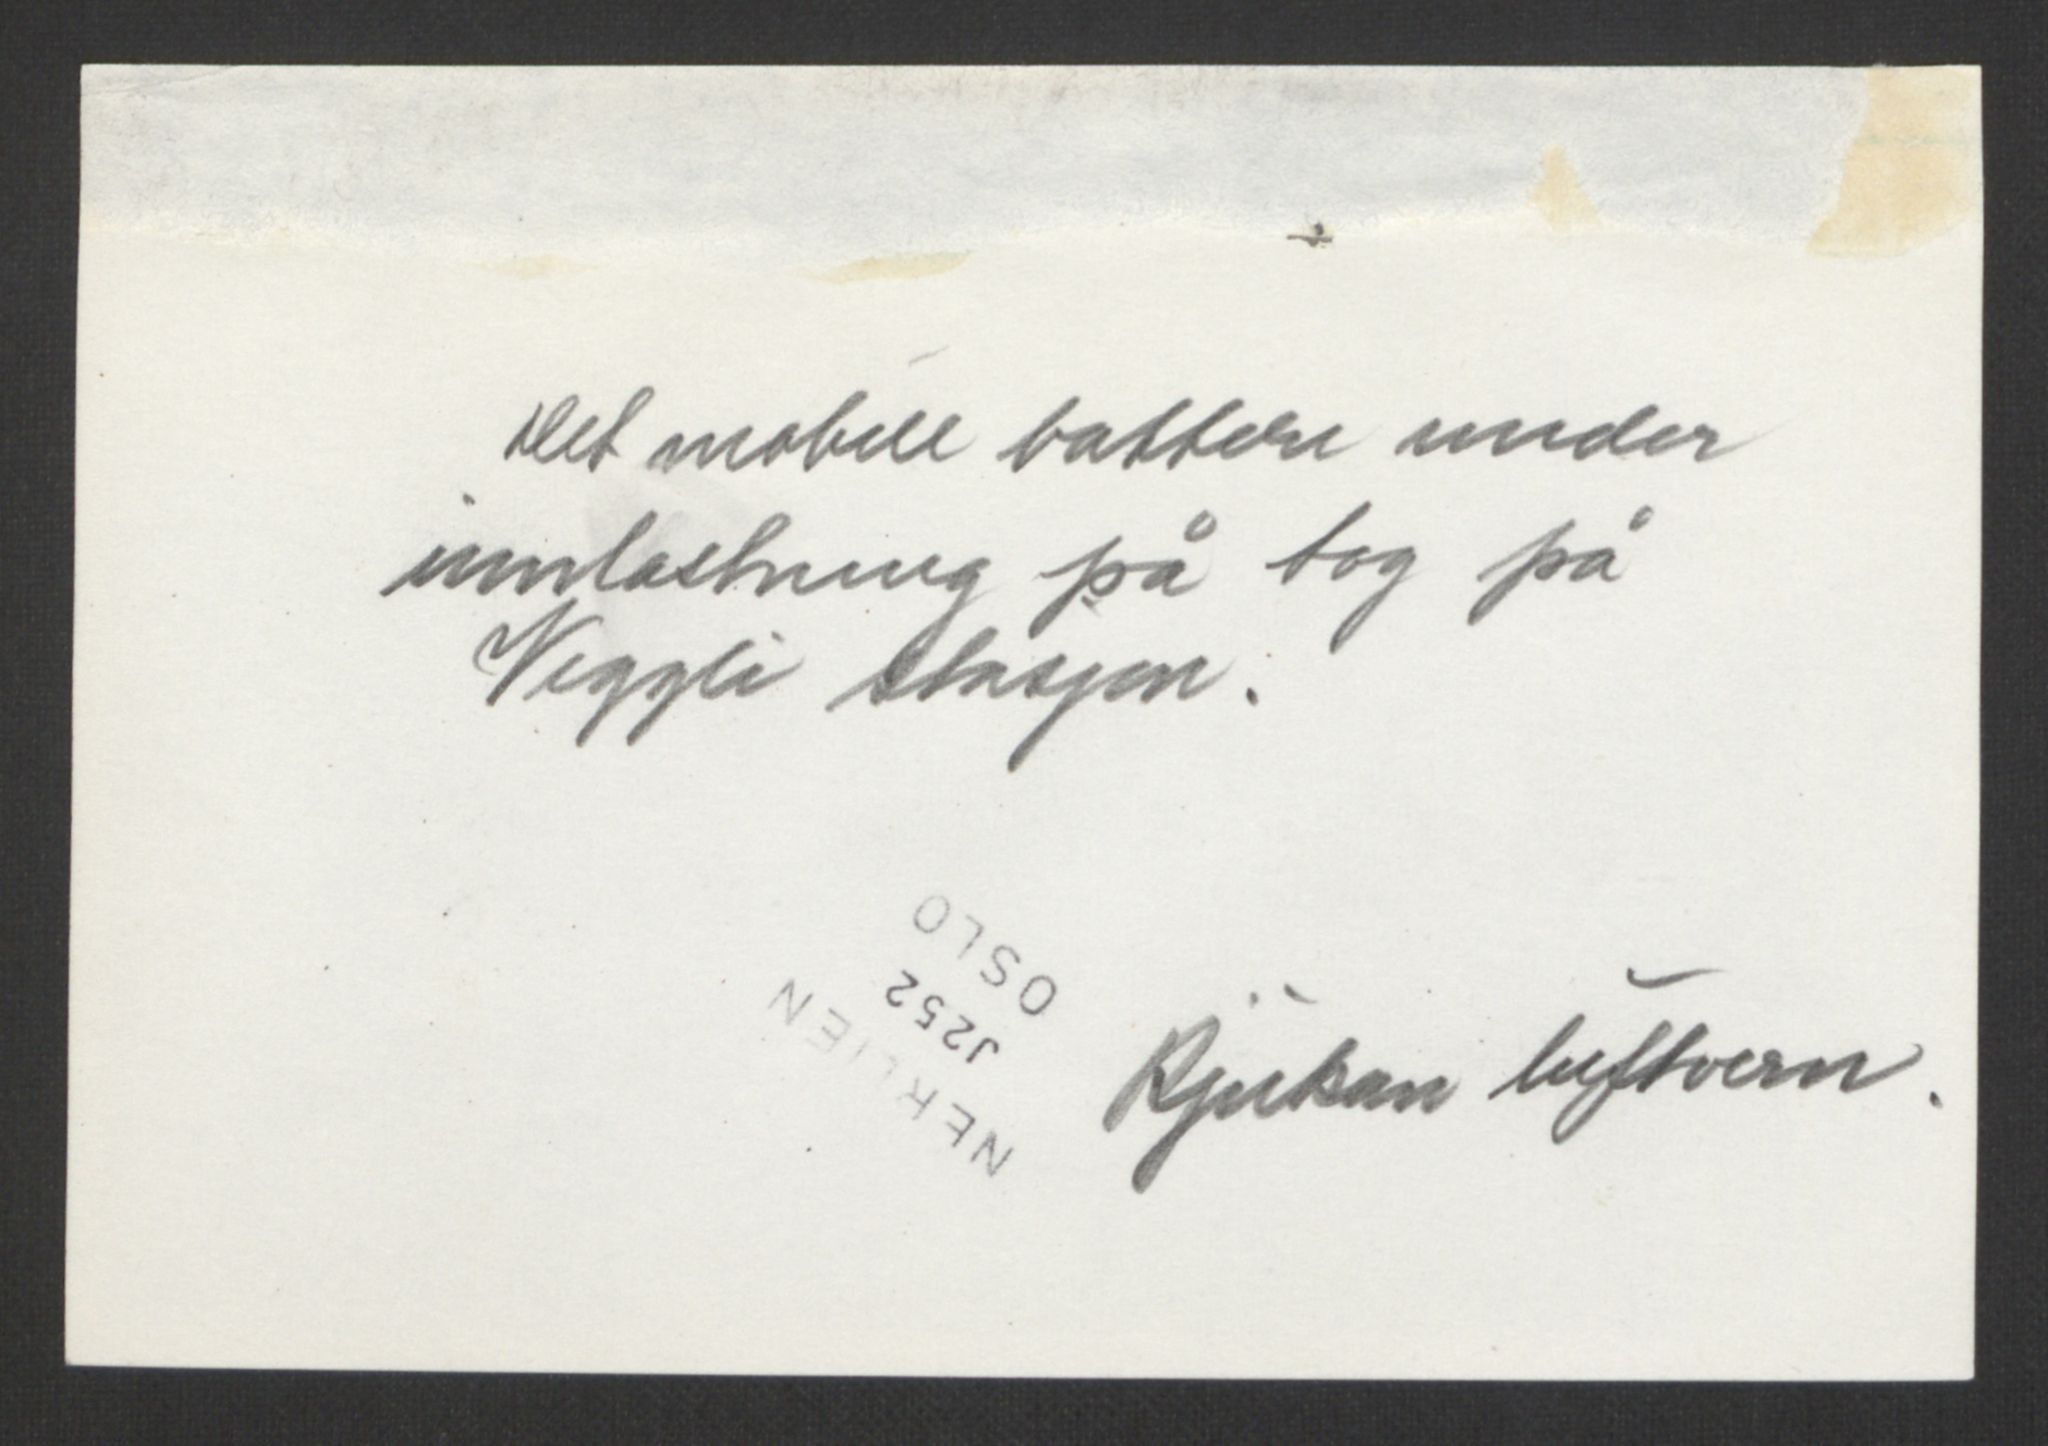 Det mobile batteri under
innlastning på tog på
Veggli stasjon.
Rjukan luftvern.
NERLIEN
J252
OSLO